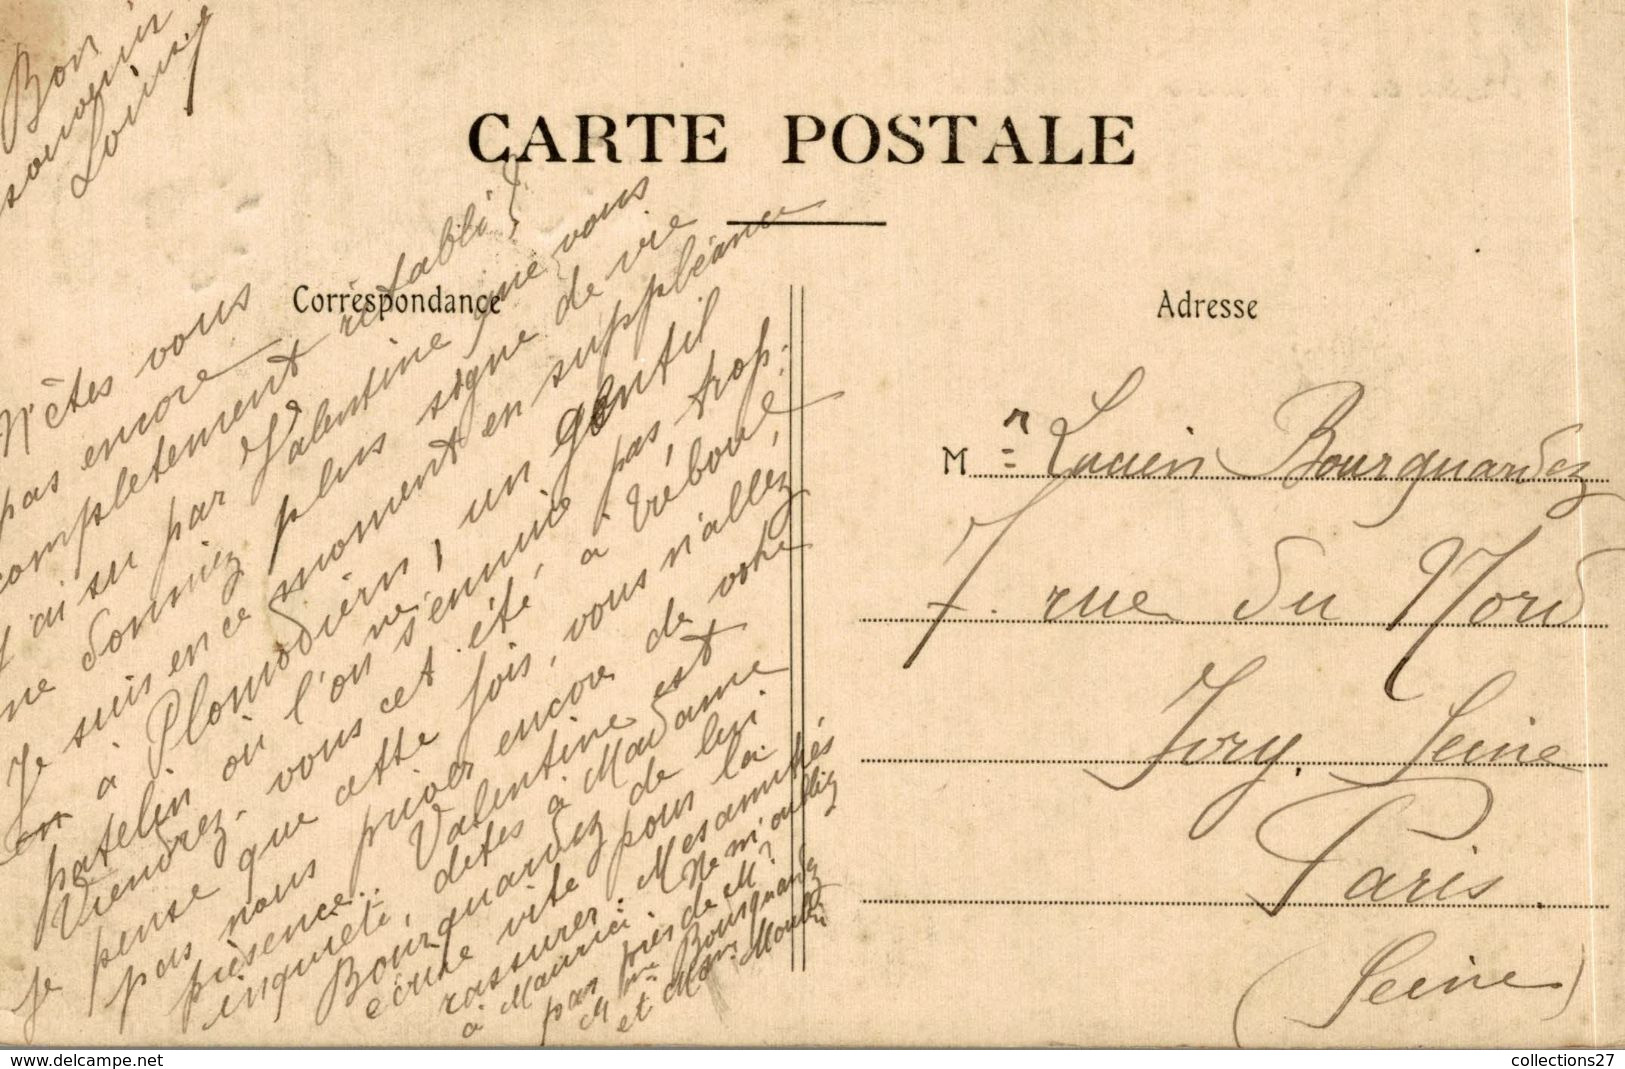 CARTE POSTALE
Correspondance
Adresse
N'êtes vous
pas encore
complètement rétabli?
J'ai su par Valentine que vous
ne donniez plus signe de vie
Je suis en ce moment en suppléance
à Plomodiern, un gentil
patelin où l'on ne s'ennuie pas trop:
Viendrez-vous cet été, à Tréboul,
je pense que cette fois, vous n'allez
pas nous priver encore de votre
présence.. Valentine est
inquiète, dites à Madame
Bourquardez de lui
écrire vite pour la
rassurer. Mes amitiés
à Maurice. Ne m'oubliez
pas près de M?
Mme Bourquardez
et Mr
Bon
souvenir
Mr Lucien Bourquardez
7. rue du Nord
Ivry. Seine
Paris.
(Seine)
collections27